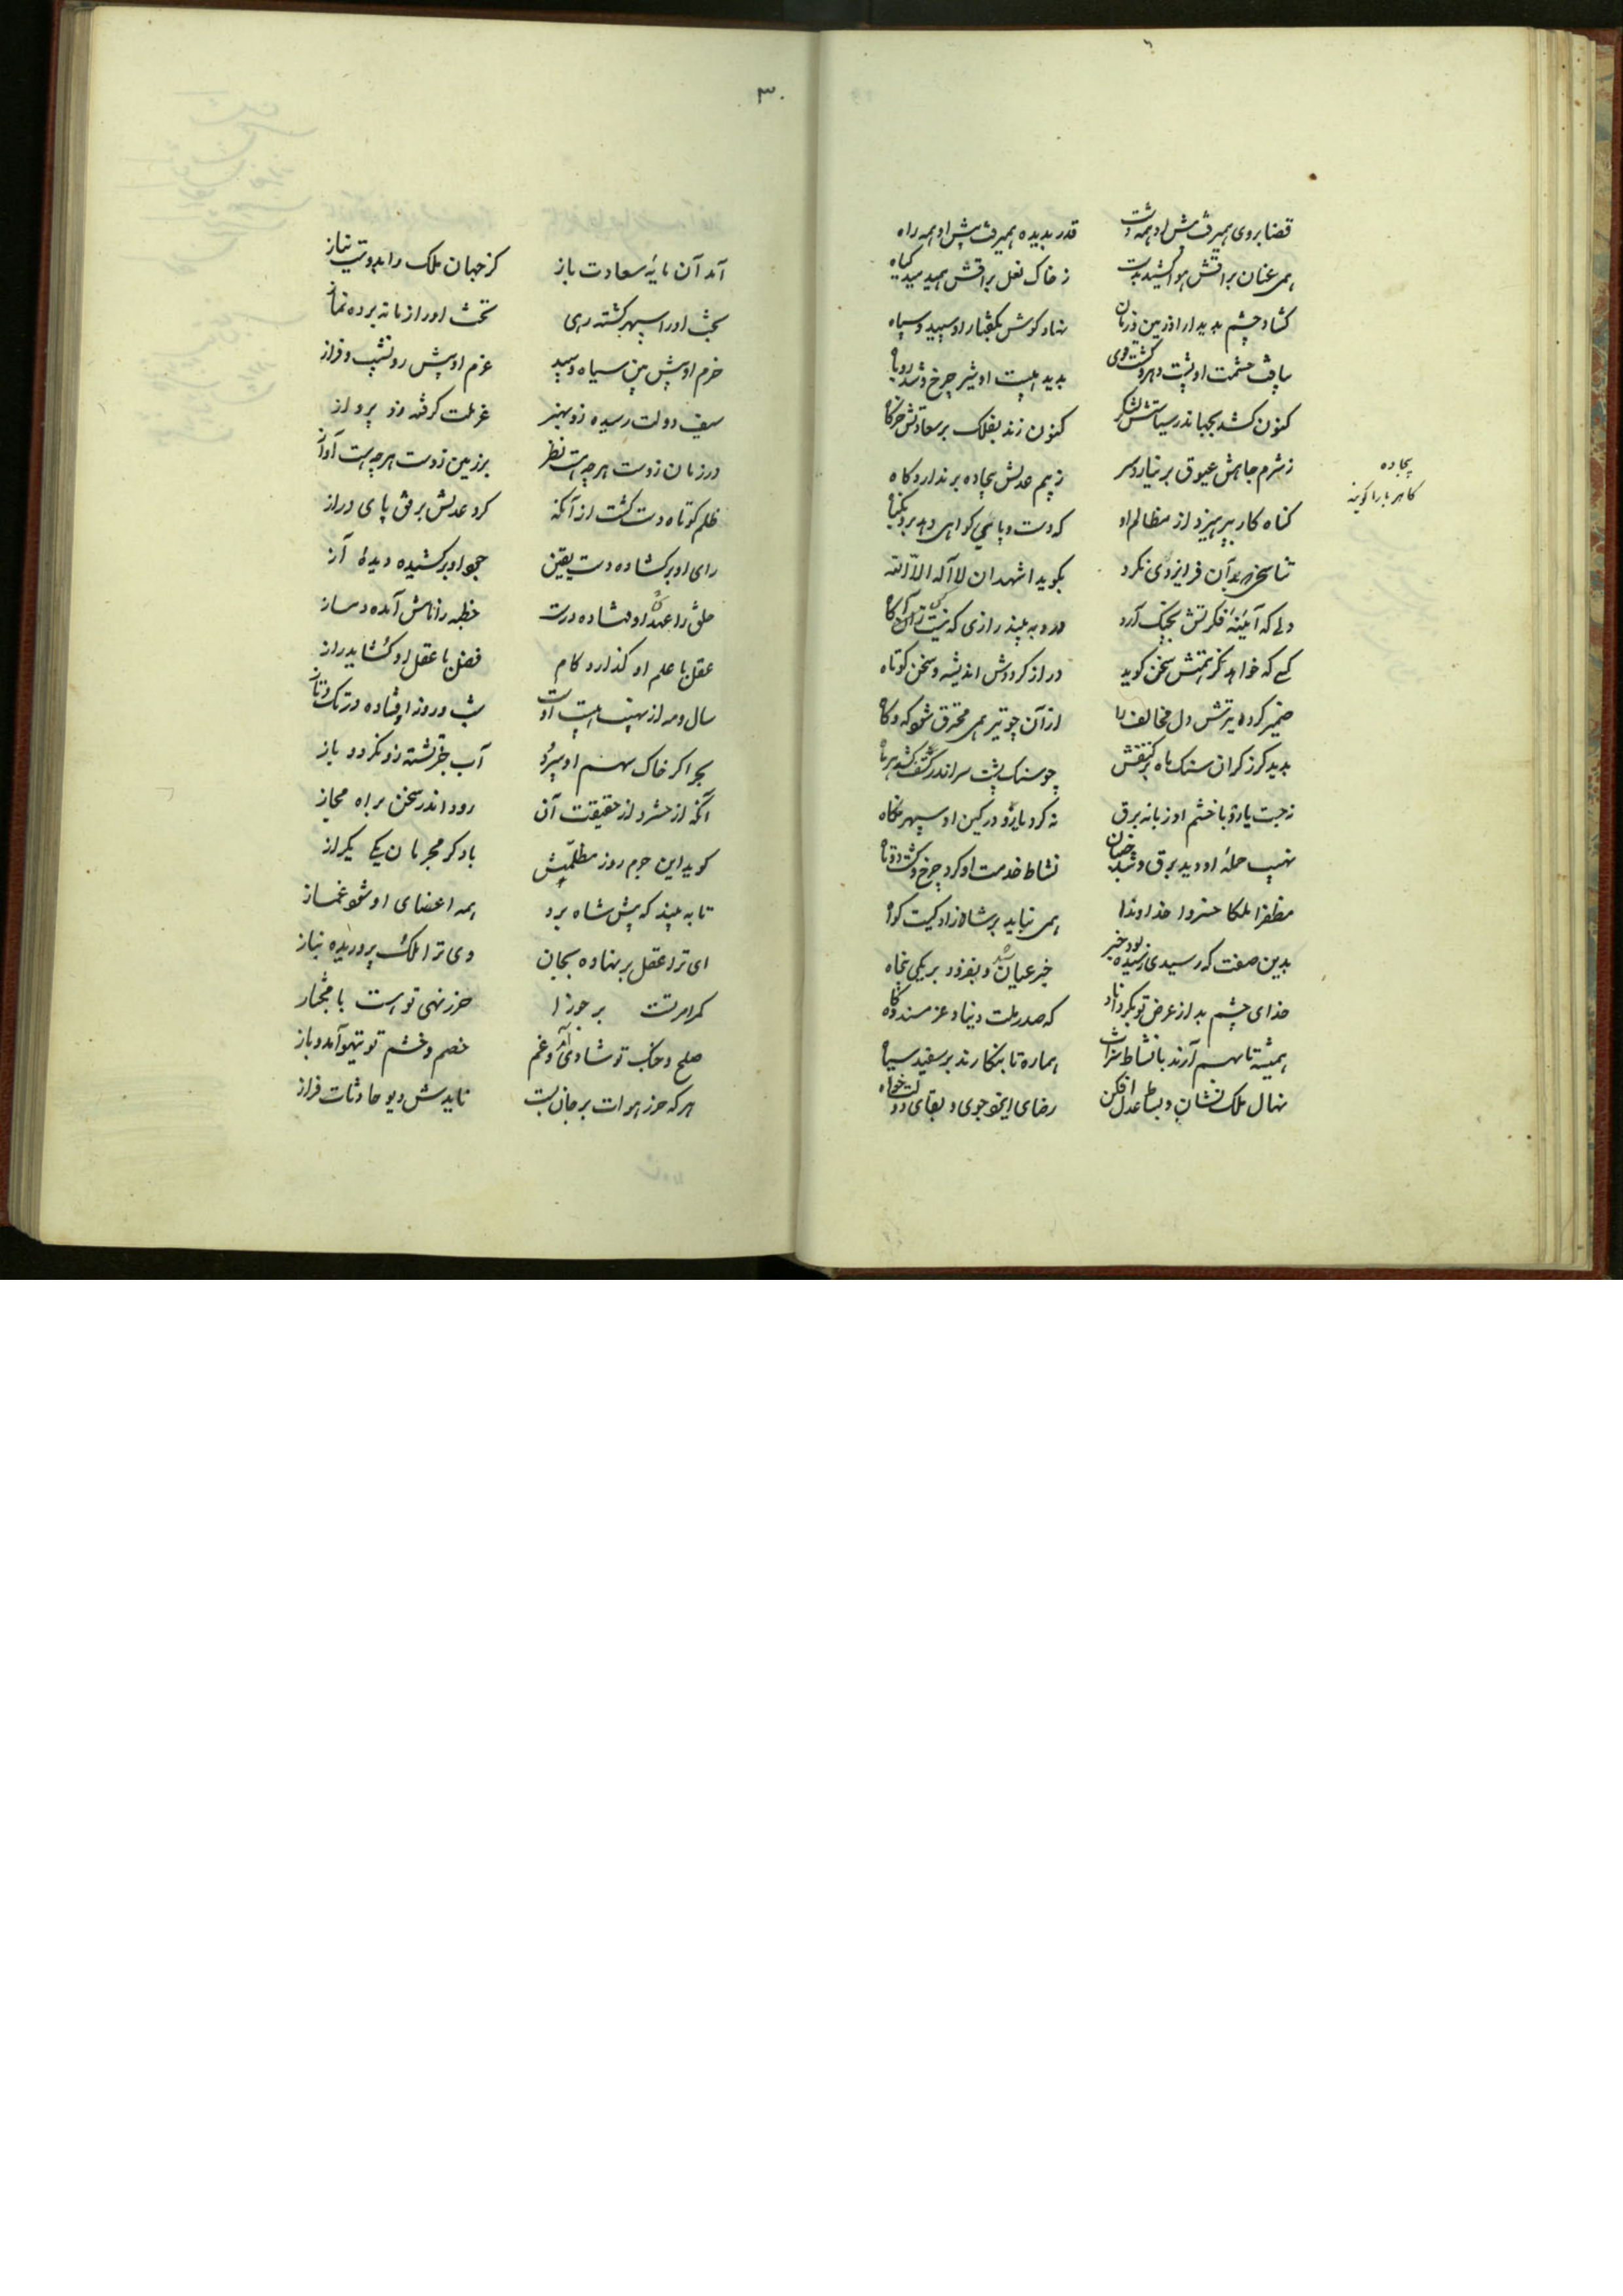 قضا بروی همیرفت پیش او همه دشت
قدر بدیده همیرفت پیش او همه راه
همی عنان براقش هوا کشید بدست
ز خاک نعل براقش همی دمید گیاه
کشاد چشم بدیدار او زمین و زمان
نهاد کوش بکفتار او سپید و سیاه
بیافت حشمت او پشت دهر و کشت قوی
بدید هیبت او شیر چرخ و شد روباه
کنون کشد بجهاندر سیاستش لشکر
کنون زند بفلک بر سعادتش خرکاه
ز شرم جاهش عیوق بر نیارد سر
ز بیم عدلش بیجاده بر ندارد کاه
بیجاده
کاهربا را کویند
کناه کار بپرهیزد از مظالم او
که دست و پای کواهی دهد برو بکناه
تناسخی صفت آن فر ایزدی نکرد
بکوید اشهد ان لا اله الا الله
دلی که آینهٔ فکرتش بچنک آرد
درو به بیند رازی که نیست زان آکاه
کسی که خواهد کز همتش سخن کوید
دراز کرددش اندیشه و سخن کوتاه
ضمیر کرده بترتش دل مخالف را
از آن چو تیر همی محترق شود که و کاه
بدید کرز کران سنک ماه بر کتفش
چو سنک پشت سر اندر کتف کشد هر ماه
نجست یارد با خشم او زبانه برق
نه کرد یارد در کین او سپهر نکاه
نهیب حملهٔ او دید برق و شد خفیان
نشاط خدمت او کرد چرخ و کشت دوتاه
مظفرا ملکا خسروا خداوندا
همی نباید بر شاه زادکیت کواه
بدین صفت که رسیدی رسیده بود خبر
خبر عیان شد و بفزود بر یکی پنجاه
خدای چشم بد از عرض تو بکرداناد
که صدر ملت و دنیا و عز مسند و کاه
همیشه تا بهم آرند با نشاط شراب
هماره تا بنکارند بر سفید سیاه
نهال ملک نشان و بساط عدل افکن
رضای ایزد جوی و بقای دولت خواه
۳۰
آمد آن مایهٔ سعادت باز
کز جهان ملک را بدوست نیاز
بخت او را سپهر کشته رهی
تخت او را زمانه برده نماز
حزم او پیش بین سیاه و سپید
عزم او پیش رو نشیب و فراز
سیف دولت رسیده زو بهنر
عز ملت کرفته زو پرواز
در زمان زوست هر چه هست نظر
بر زمین زوست هر چه هست آواز
ظلم کوتاه دست کشت از آنکه
کرد عدلش برفق پای دراز
رای او بر کشاده دست یقین
جود او بر کشیده دیدهٔ آز
خلق را عهد او فتاده درست
خطبه را نامش آمده دمساز
عقل با علم او کذارد کام
فضل با عقل او کشاید راز
سال و مه از نهیب هیبت اوست
شب و روز اوفتاده در تک و تاز
بحر اکر خاک سهم او سپرد
آب جز تشنه زو نکردد باز
آنکه از حشر و از حقیقت آن
رود اندر سخن براه مجاز
کوید این جرم روز مظلمتش
یاد کر مجرمان یکی یکراز
تا به بیند که پیش شاه برد
همه اعضای او شود غماز
ای ترا عقل بر نهاده بجان
وی ترا ملک پروریده بناز
کمر امرتست بر جوزا
حرز نهی تو است با
صلح و جنک تو شادی آرد و غم
خصم و خشم تو تیهو آمد و باز
هر که حرز هوات بر جان بست
نایدش دیو حادثات فراز